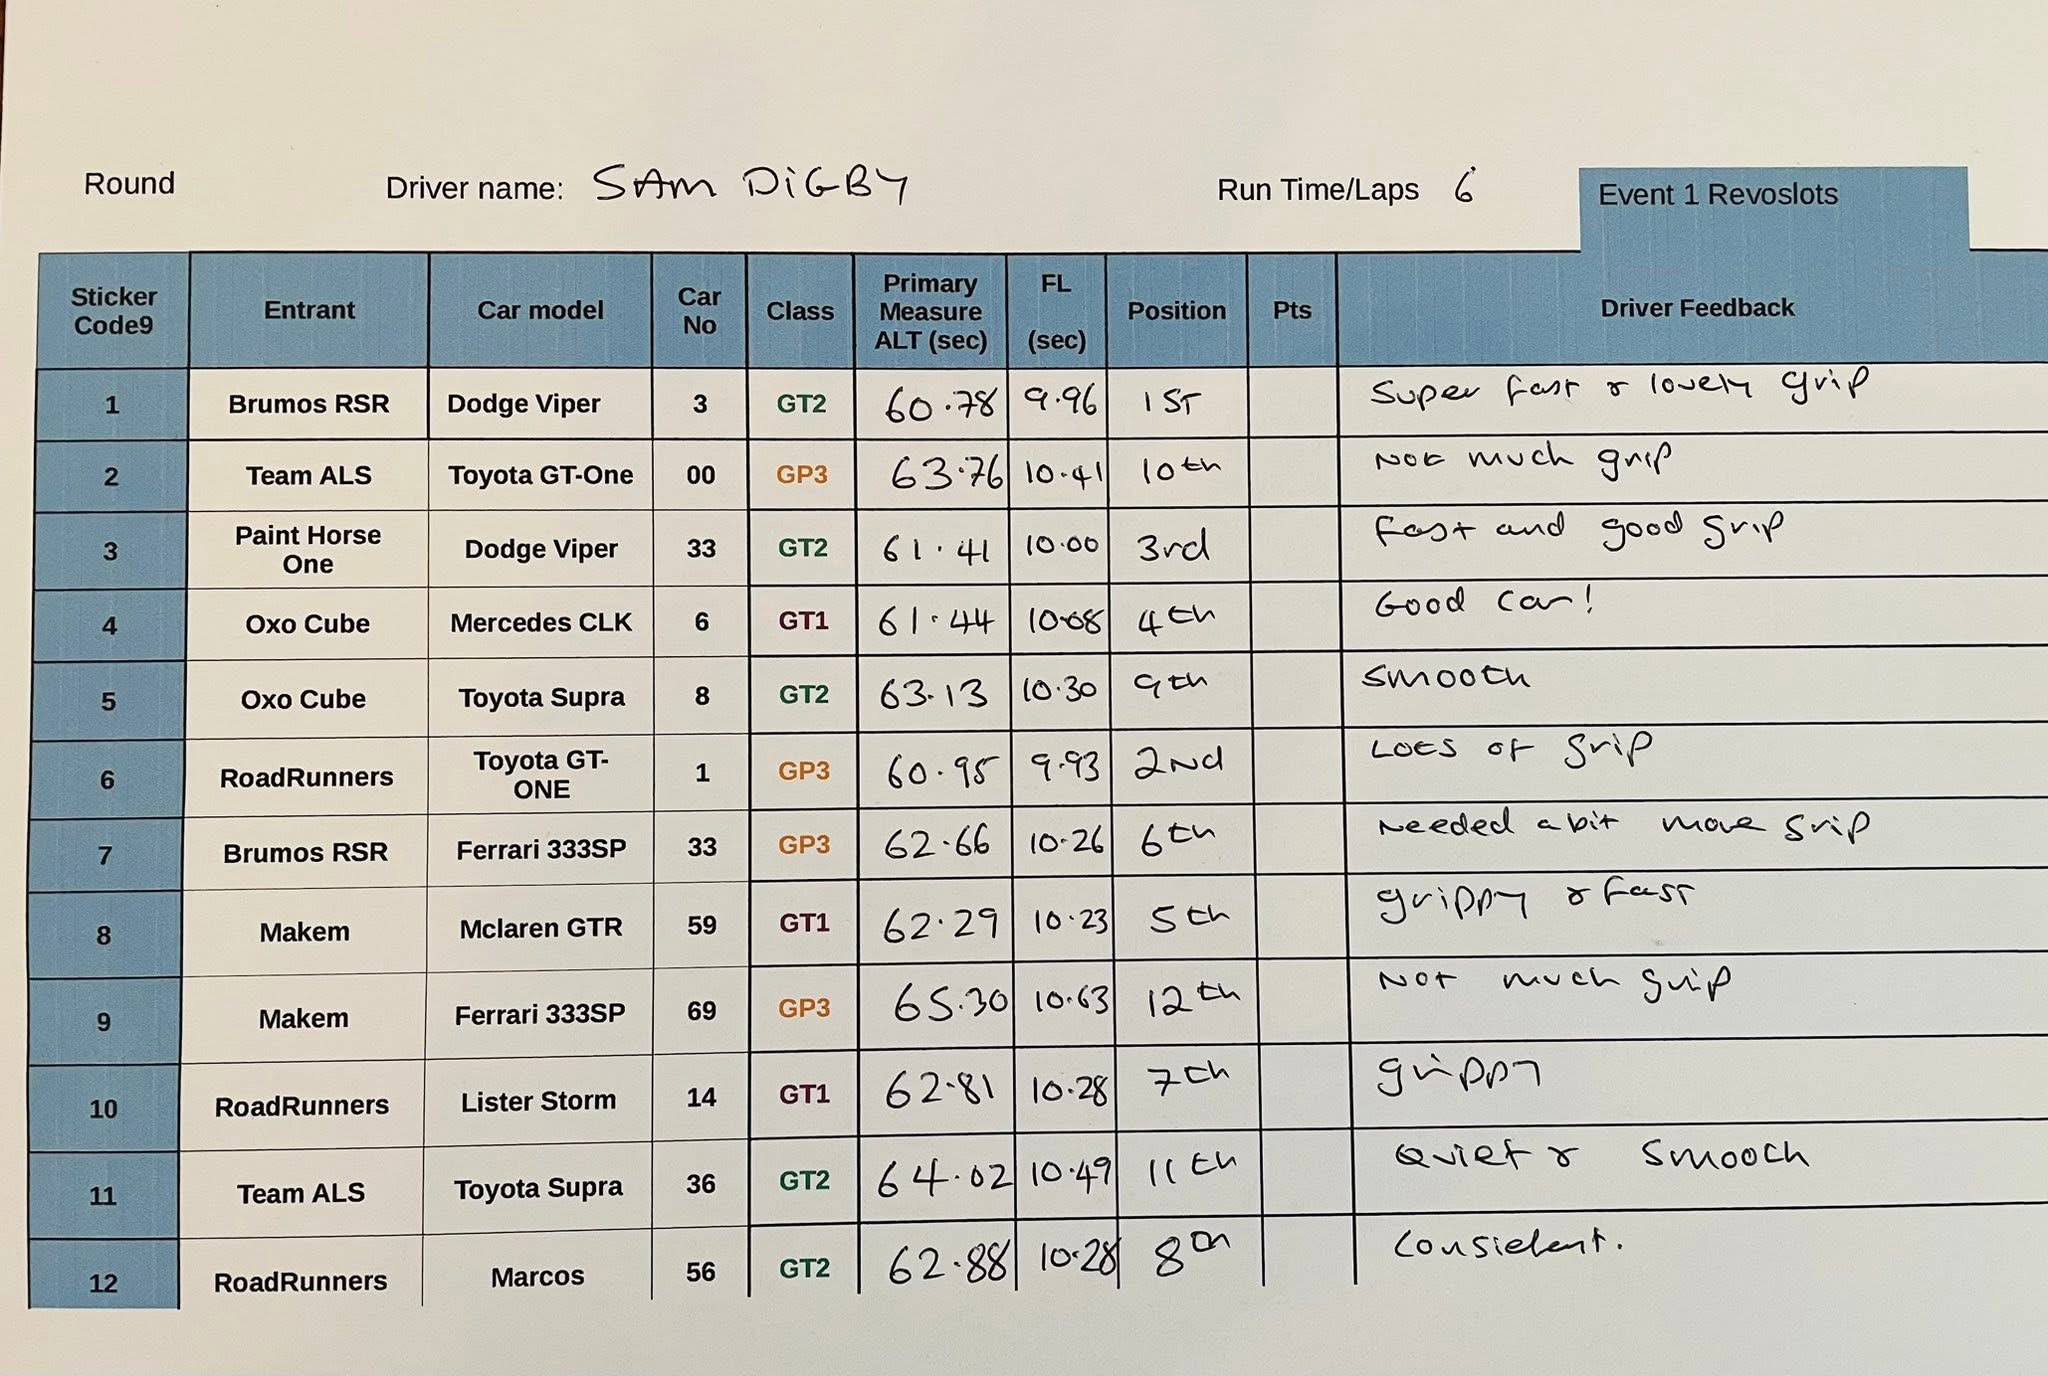 Round Driver name: SAM DiGBY Run Time/Laps 6 Event 1 Revoslots
Sticker Code9 Entrant Car model Car No Class Primary Measure ALT (sec) FL (sec) Position Pts Driver Feedback
1 Brumos RSR Dodge Viper 3 GT2 60.78 9.96 1ST Super fast & lovely grip
2 Team ALS Toyota GT-One 00 GP3 63.76 10.41 10th Not much grip
3 Paint Horse One Dodge Viper 33 GT2 61.41 10.00 3rd Fast and good grip
4 Oxo Cube Mercedes CLK 6 GT1 61.44 10.08 4th Good car!
5 Oxo Cube Toyota Supra 8 GT2 63.13 10.30 9th Smooth
6 RoadRunners Toyota GT-ONE 1 GP3 60.95 9.93 2nd Lots of grip
7 Brumos RSR Ferrari 333SP 33 GP3 62.66 10.26 6th Needed a bit more grip
8 Makem Mclaren GTR 59 GT1 62.29 10.23 5th grippy & fast
9 Makem Ferrari 333SP 69 GP3 65.30 10.63 12th Not much grip
10 RoadRunners Lister Storm 14 GT1 62.81 10.28 7th grippy
11 Team ALS Toyota Supra 36 GT2 64.02 10.49 11th Quiet & smooth
12 RoadRunners Marcos 56 GT2 62.88 10.28 8th Consistent.